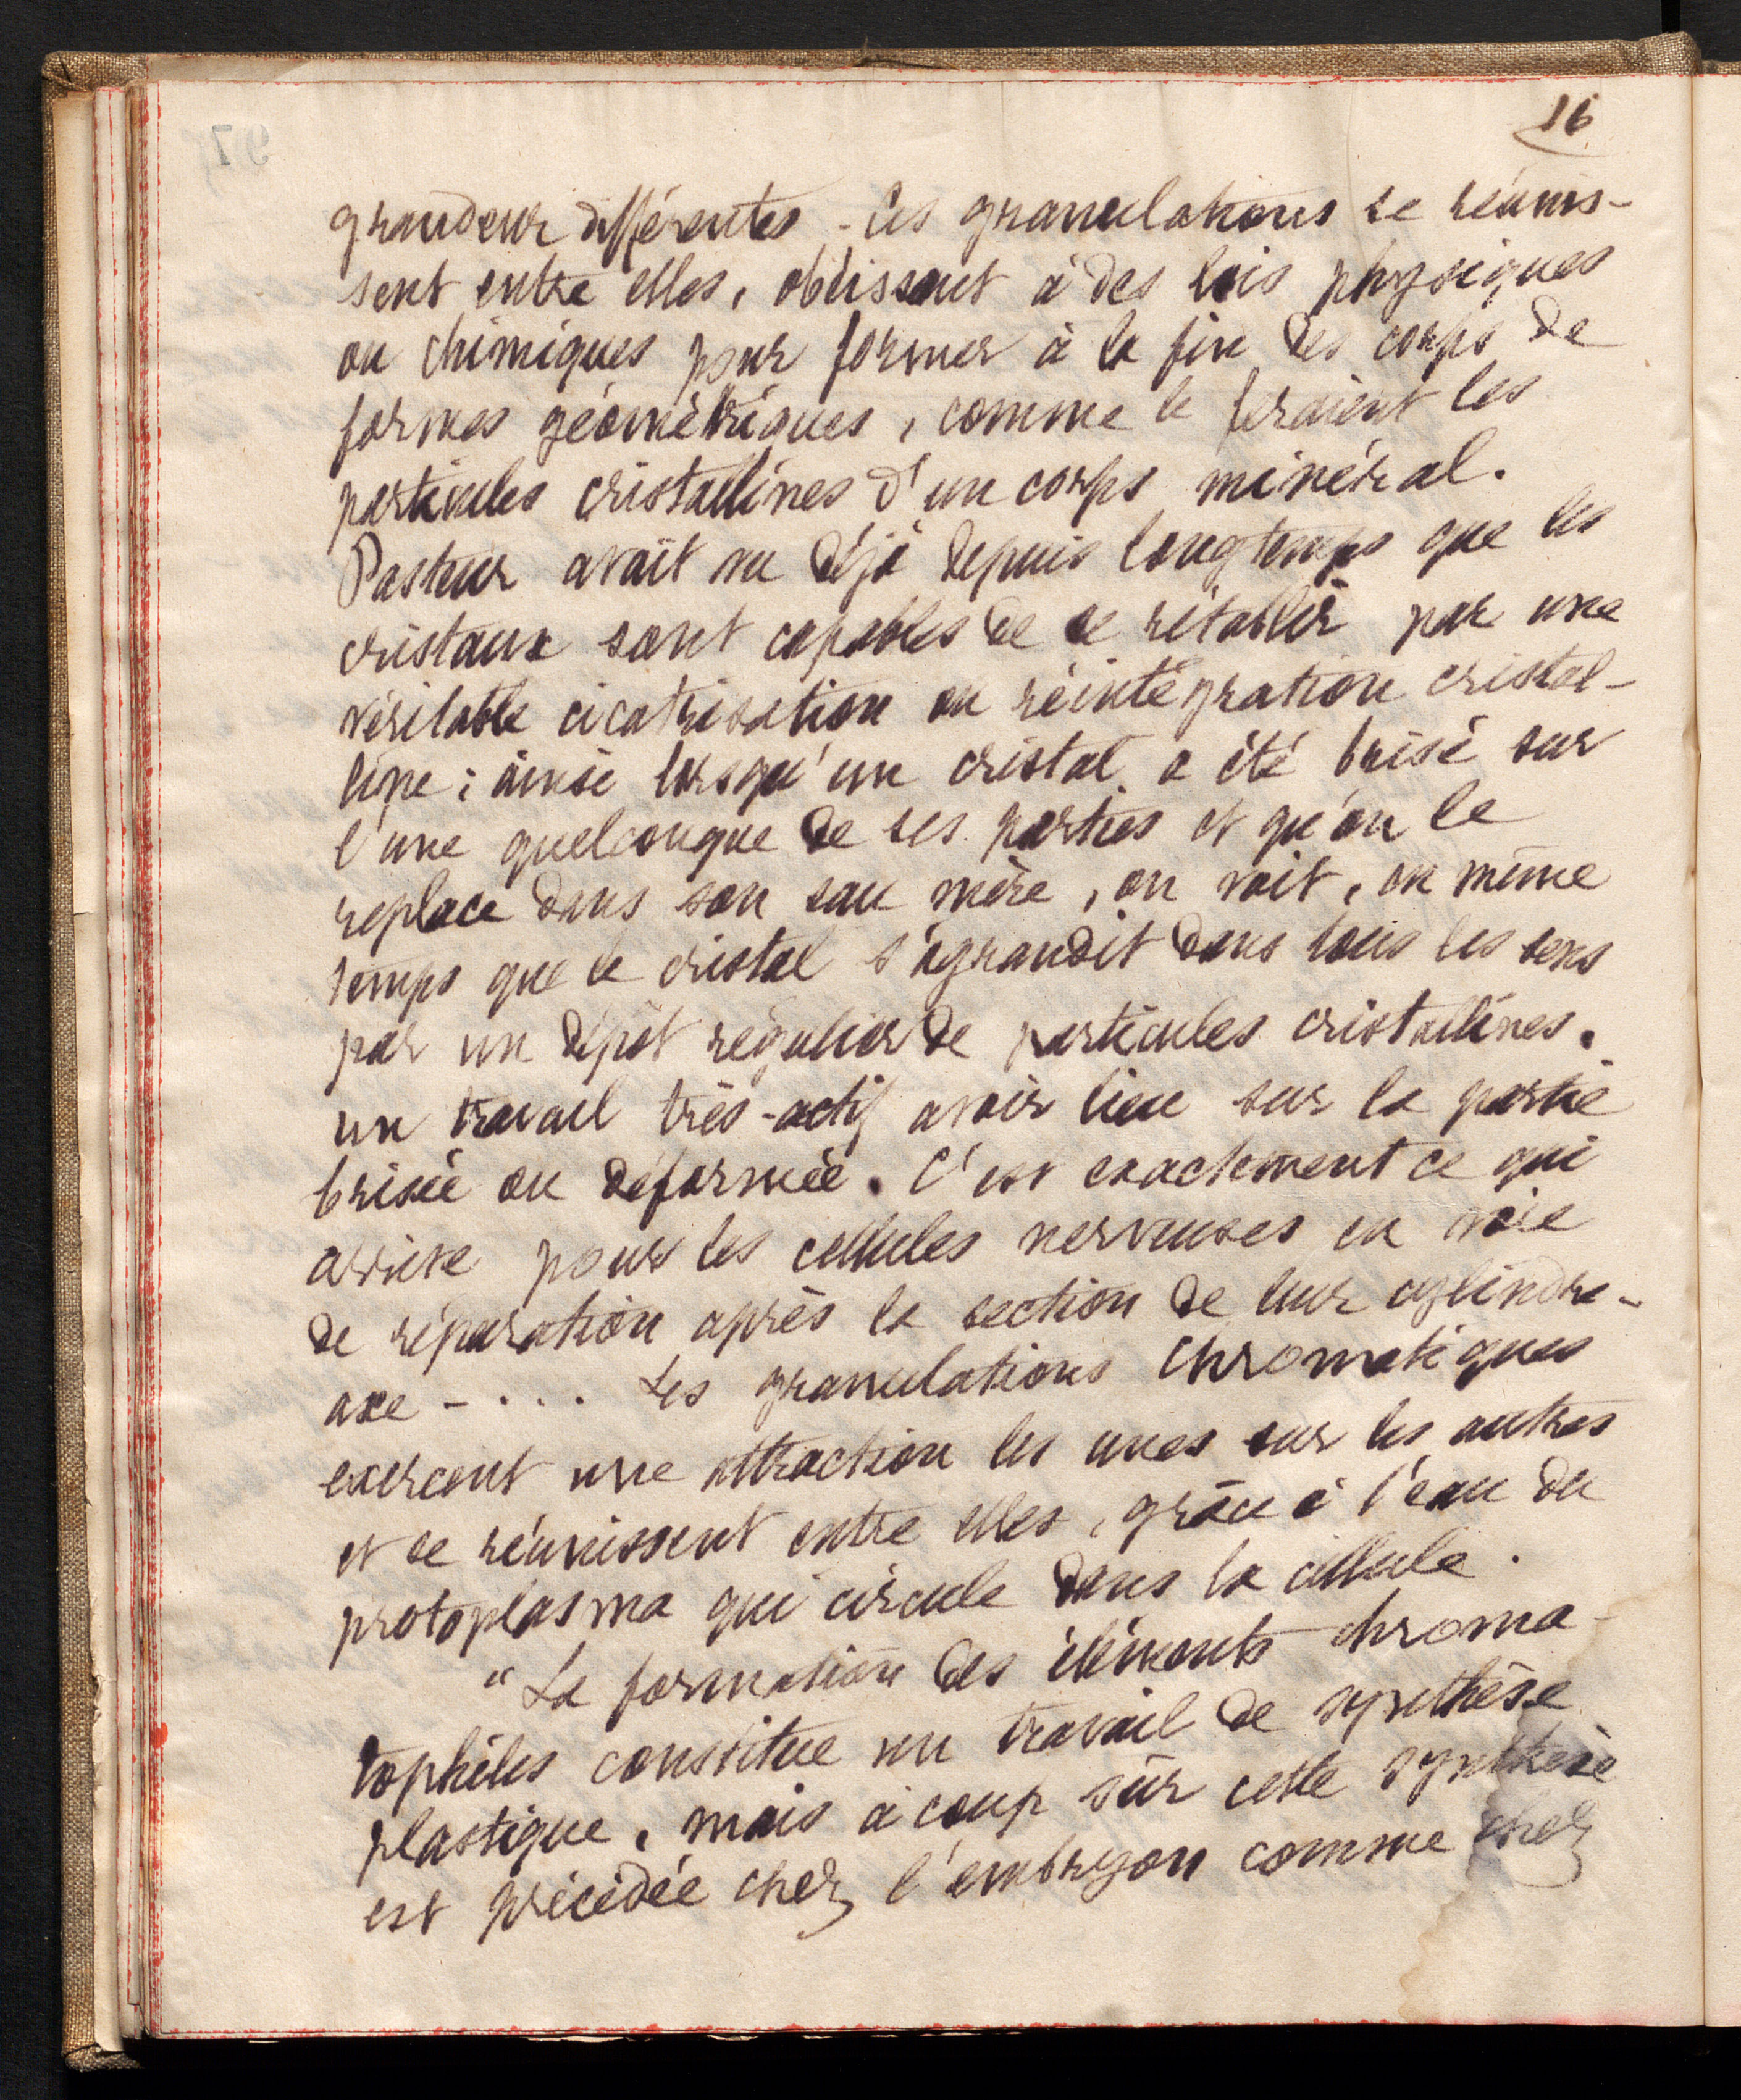 16
grandeur différentes - Ces granulations se réunis-
sent entre elles, obéissant à des lois physiques
ou chimiques pour former à la fin des corps de
formes géométriques, comme le feraient les
particules cristallines d'un corps minéral.
Pasteur avait vu déjà depuis longtemps que les
cristaux sont capables de se rétablir par une
véritable cicatrisation ou réintégration cristal-
line : ainsi lorsqu'un cristal a été brisé sur
l'une quelconque de ses parties et qu'on le
replace dans son eau mère, on voit, en même
temps que le cristal s'agrandit dans tous les sens
par un dépôt régulier de particules cristallines.
un travail très-actif avoir lieu sur la partie
brisée ou déformée. C'est exactement ce qui
arrive pour les cellules nerveuses en voie
de réparation après la section de leur cylindre-
axe - . . . Les granulations chromatiques
exercent une attraction les unes sur les autres
et se réunissent entre elles, grâce à l'eau du
protoplasma qui circule dans la cellule.
" La formation des éléments chroma-
tophiles constitue un travail de synthèse
plastique, mais à coup sûr cette synthèse
est précédée chez l'embryon comme chez